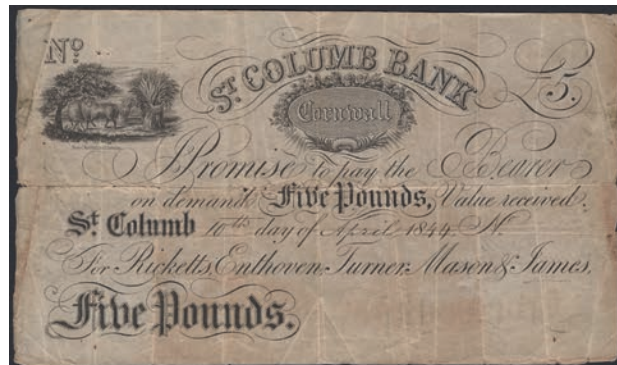 No
ST. COLUMB BANK
£5.
Cornwall
I Promise to pay the Bearer
on demand Five Pounds, Value received.
St. Columb 10th day of April 1844. N.
For Ricketts, Enthoven, Turner, Mason & James,
Five Pounds.